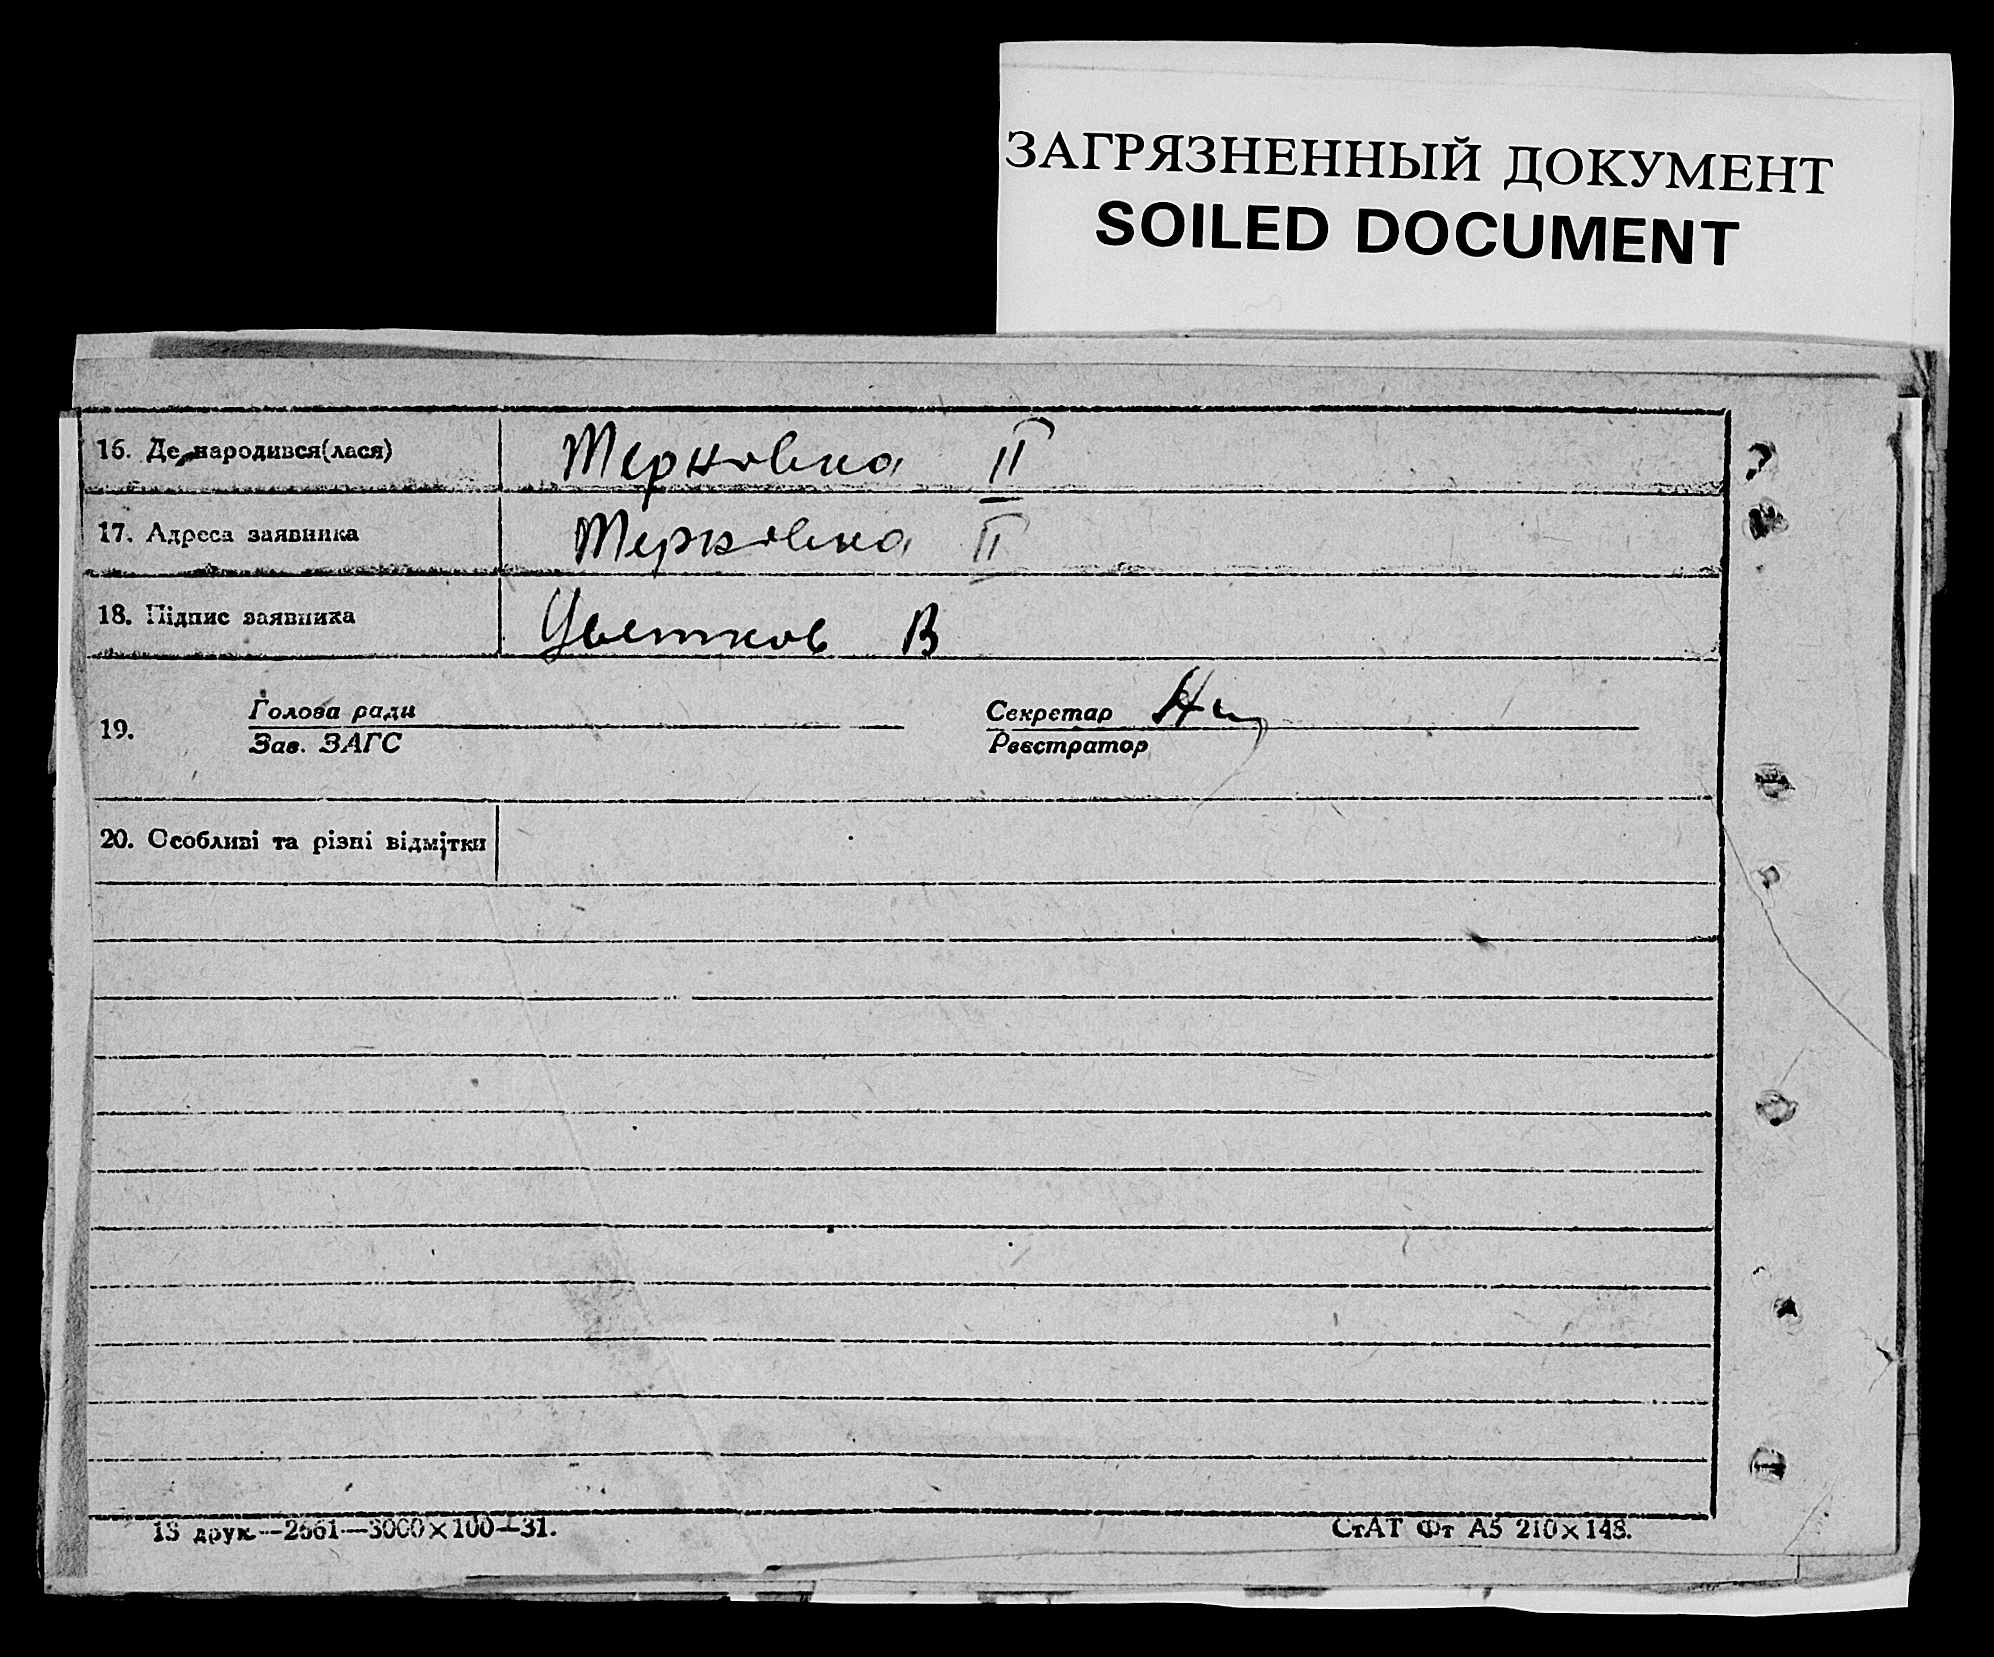 ЗАГРЯЗНЕННЫЙ ДОКУМЕНТ
SOILED DOCUMENT
16. Де народився(лася) Терновка II
17. Адреса заявника Терновка II
18. Підпис заявника Цветков В
19. Голова ради Секретар
Зав. ЗАГС Реєстратор
20. Особливі та різні відмітки
13 друк.—2661—3000×100—31.
СтАТ Фт А5 210×148.